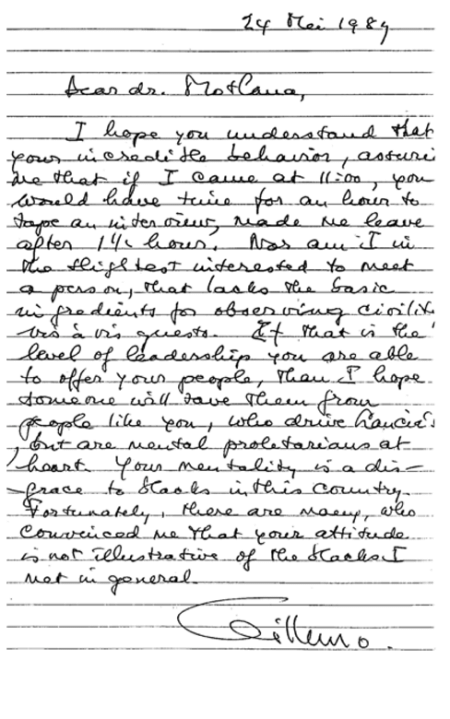 24 Mei 1989
Dear dr. Motlana,
I hope you understand that
your incredible behavior, assuring
me that if I came at 11:00, you
would have time for an hour to
tape an interview, made me leave
after 1½ hour. Nor am I in
the slightest interested to meet
a person, that lacks the basic
ingredients for observing civility
vis à vis guests. If that is the
level of leadership you are able
to offer your people, than I hope
someone will save them from
people like you, who drive Lancia's
, but are mental proletarians at
heart. Your mentality is a dis-
grace to blacks in this country.
Fortunately, there are many, who
convinced me that your attitude
is not illustrative of the blacks I
met in general.